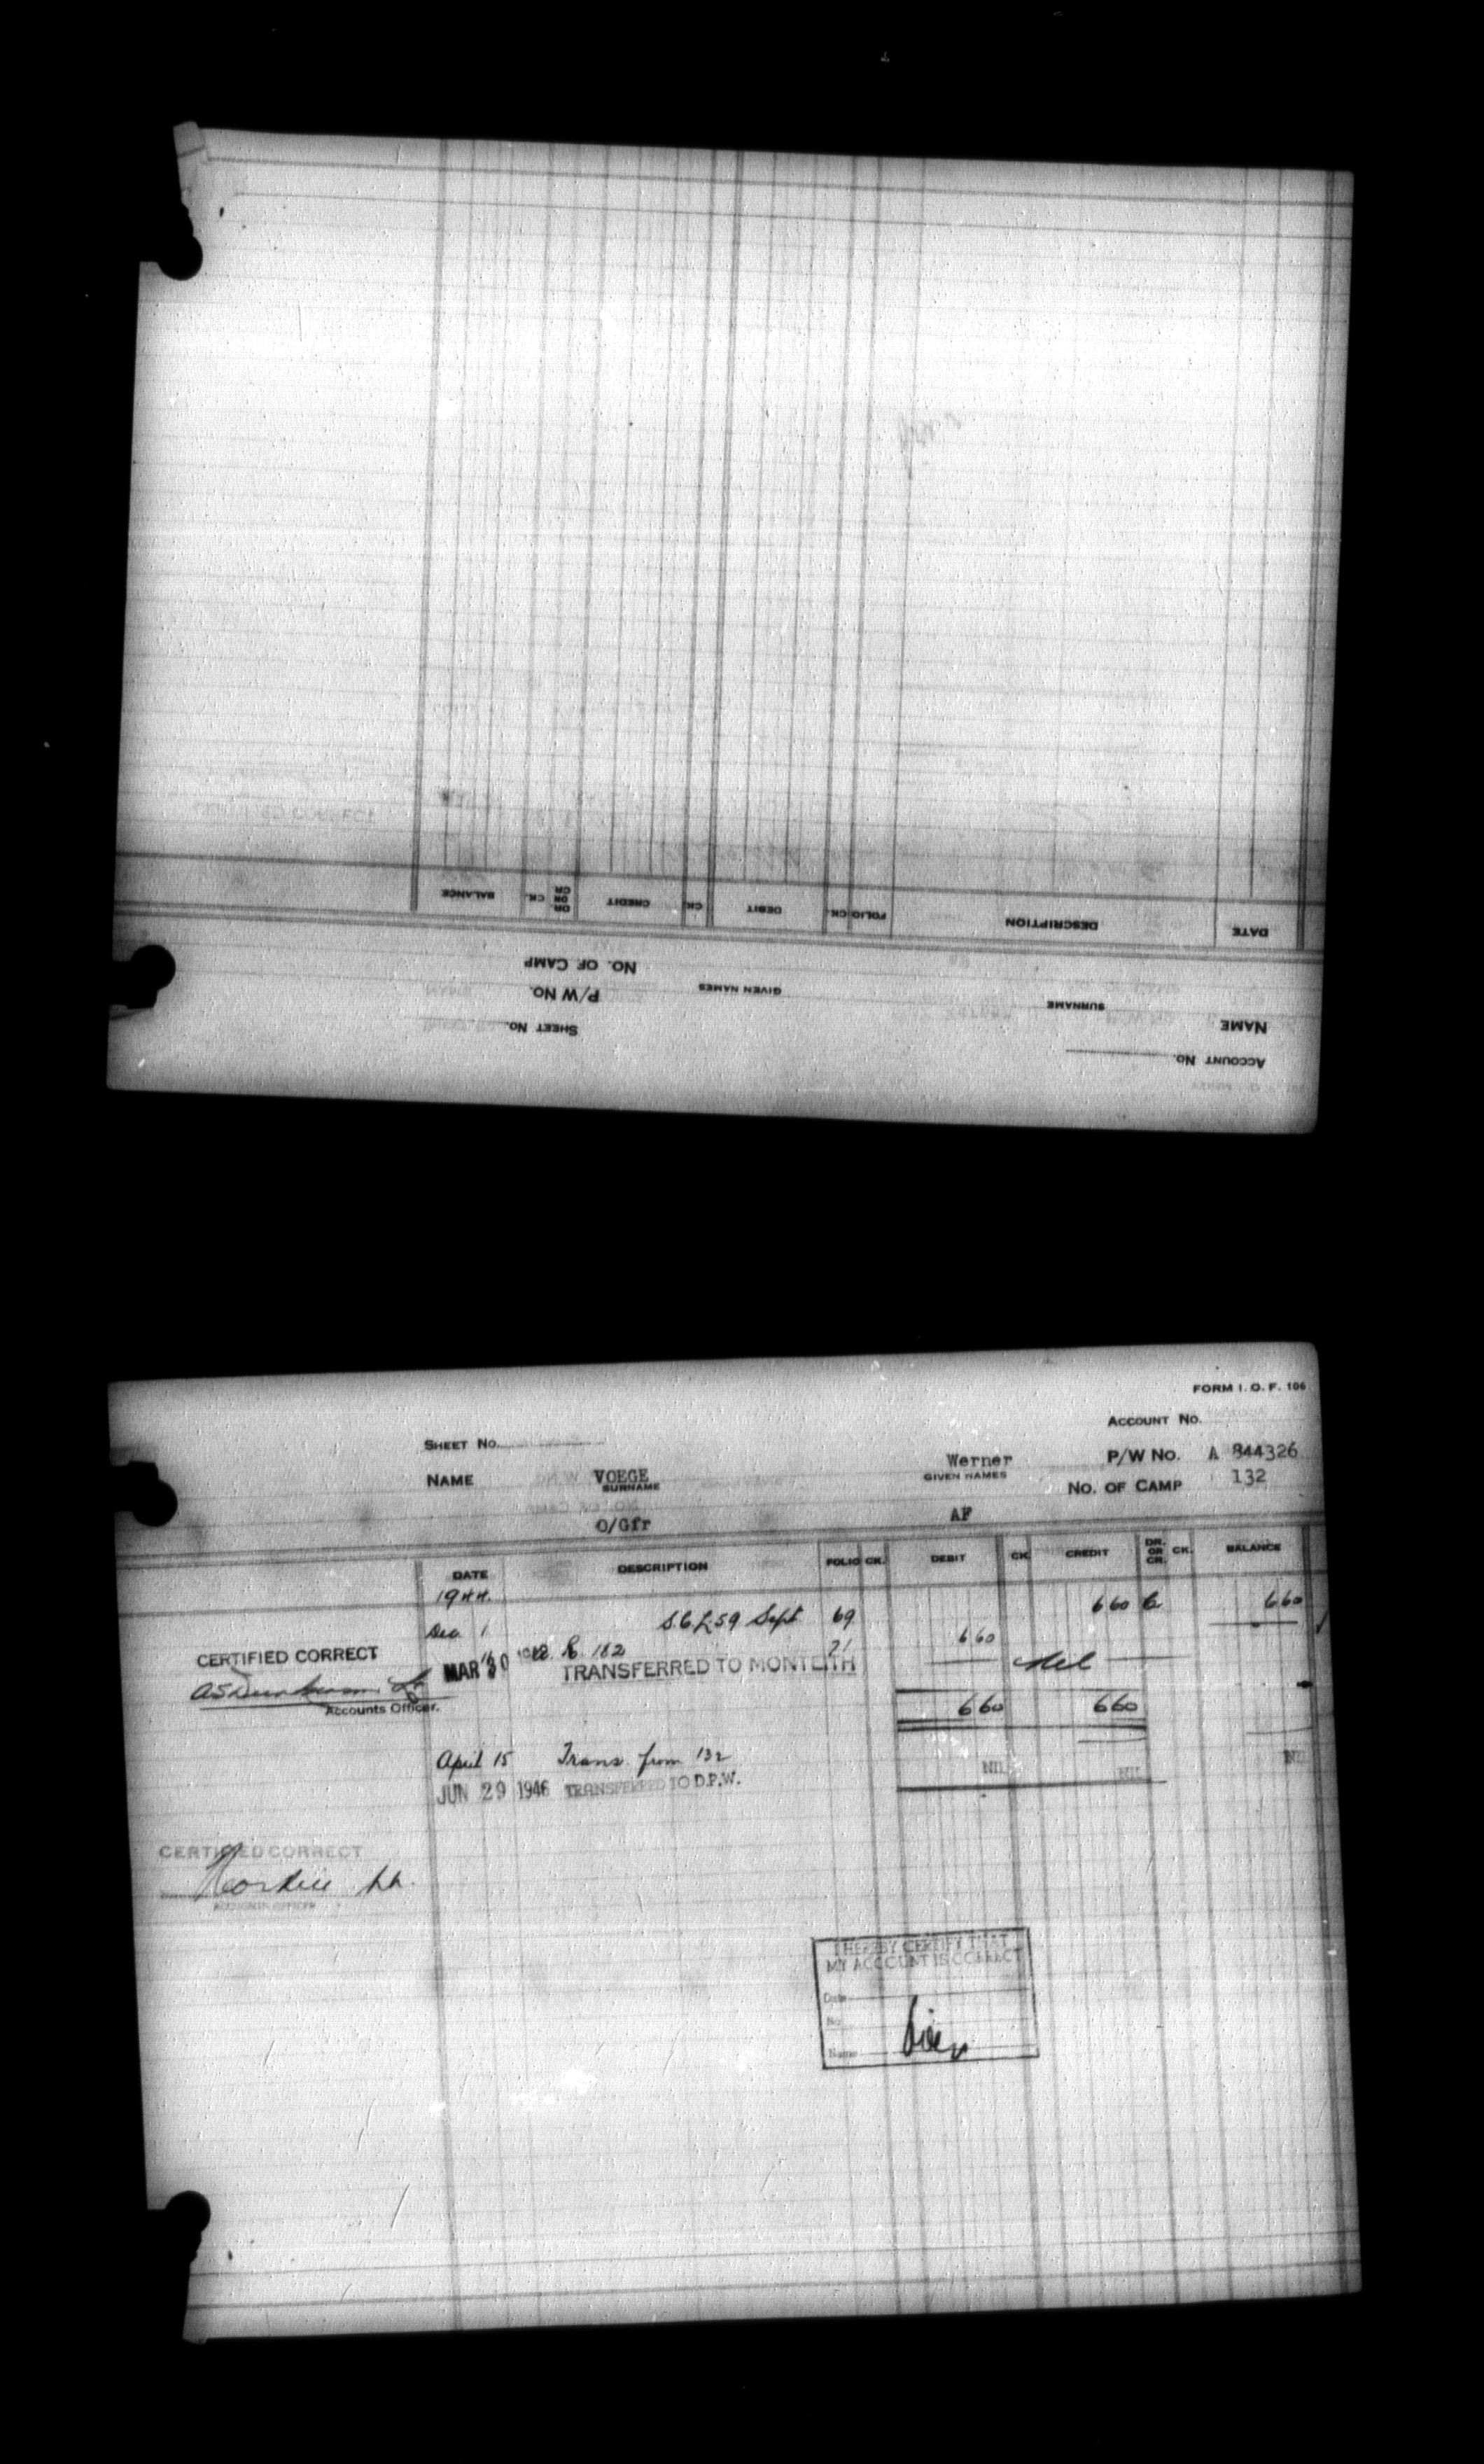 BALANCE CK. DR. OR CR. CREDIT CK. DEBIT CK. FOLIO DESCRIPTION DATE
NO. OF CAMP
P/W NO. GIVEN NAMES SURNAME NAME
SHEET NO. ACCOUNT NO.
FORM I. O. F. 106
ACCOUNT NO.
SHEET NO. P/W NO. A 844326
NAME VOEGE Werner
SURNAME GIVEN NAMES NO. OF CAMP 132
O/Gfr AF
DATE DESCRIPTION FOLIO CK. DEBIT CK. CREDIT DR. OR CR. CK. BALANCE
1944.
Dec 1 Sept 69 6 60 Cr 6 60
CERTIFIED CORRECT
182 71 6 60
MAR 30 TRANSFERRED TO MONTEITH Nil
Accounts Officer. 6 60 6 60
April 15 Trans. from 132 NIL NIL NIL
JUN 29 1946 TRANSFERRED TO D.P.W.
CERTIFIED CORRECT
ACCOUNTS OFFICER
I HEREBY CERTIFY THAT
MY ACCOUNT IS CORRECT
Date
No.
Name